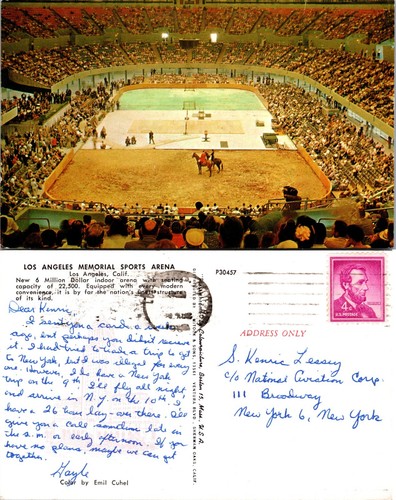 LOS ANGELES MEMORIAL SPORTS ARENA
Los Angeles, Calif.
New 6 Million Dollar indoor arena with seating
capacity of 22,500. Equipped with every modern
convenience, it is by far the nation's structures
of its kind.
Dear Kenric,
I sent you a card a week
ago, but perhaps you didn't receive
it. I had to trade a trip to go
to New York, but I was illegal for my
one. However, I do have a New York
trip on the 9th. I'll fly all night
and arrive in N.Y. on the 10th. I
have a 26 hour lay-over there. I'll
give you a call sometime late in
the a.m. or early afternoon. If you
have no plans, maybe we can get
together.
Gayle
Color by Emil Cuhel
P30457
4¢
U.S. POSTAGE
ADDRESS ONLY
S. Kenric Lessey
c/o National Aviation Corp.
111 Broadway
New York 6, New York